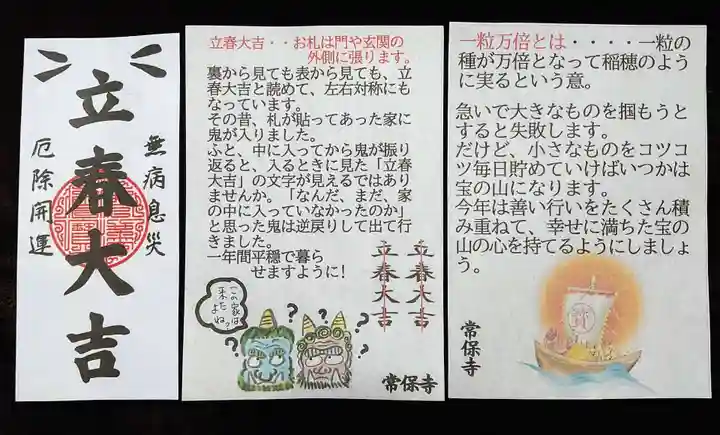 立春大吉
無病息災
厄除開運
立春大吉・・お札は門や玄関の
外側に張ります。
裏から見ても表から見ても、立
春大吉と読めて、左右対称にも
なっています。
その昔、札が貼ってあった家に
鬼が入りました。
ふと、中に入ってから鬼が振り
返ると、入るときに見た「立春
大吉」の文字が見えるではあり
ませんか。「なんだ、まだ、家
の中に入っていなかったのか」
と思った鬼は逆戻りして出て行
きました。
一年間平穏で暮ら
せますように！
立春大吉
立春大吉
この家は
来た
よね？
? ? ? ? ?
常保寺
一粒万倍とは・・・・一粒の
種が万倍となって稲穂のよう
に実るという意。
急いで大きなものを掴もうと
すると失敗します。
だけど、小さなものをコツコ
ツ毎日貯めていけばいつかは
宝の山になります。
今年は善い行いをたくさん積
み重ねて、幸せに満ちた宝の
山の心を持てるようにしましょ
う。
常保寺